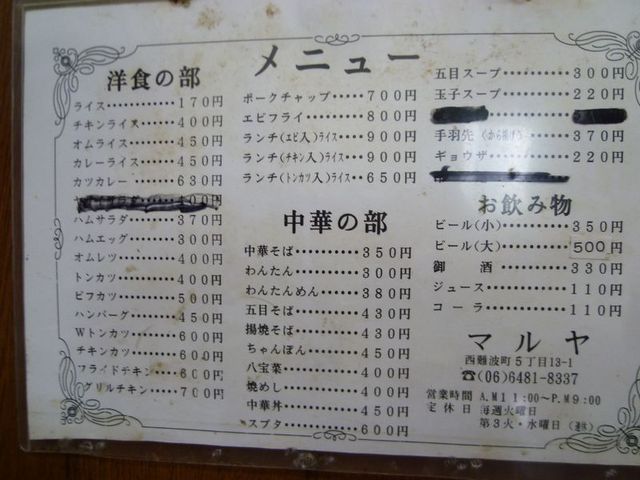 メニュー
洋食の部
ライス・・・・・・・・・・170円
チキンライス・・・・・400円
オムライス・・・・・・450円
カレーライス・・・・・450円
カツカレー・・・・・・630円
ハムサラダ・・・・・・370円
ハムエッグ・・・・・・300円
オムレツ・・・・・・・・400円
トンカツ・・・・・・・・400円
ビフカツ・・・・・・・・500円
ハンバーグ・・・・・・450円
Wトンカツ・・・・・・600円
チキンカツ・・・・・・600円
フライドチキン・・・600円
グリルチキン・・・・700円
ポークチャップ・・・・700円
エビフライ・・・・・・・・800円
ランチ(エビ入)ライス・・・900円
ランチ(チキン入)ライス・・900円
ランチ(トンカツ入)ライス・・650円
中華の部
中華そば・・・・・・・・・・350円
わんたん・・・・・・・・・・300円
わんたんめん・・・・・・380円
五目そば・・・・・・・・・・430円
揚焼そば・・・・・・・・・・430円
ちゃんぽん・・・・・・・・450円
八宝菜・・・・・・・・・・・・400円
焼めし・・・・・・・・・・・・400円
中華丼・・・・・・・・・・・・450円
スブタ・・・・・・・・・・・・600円
五目スープ・・・・・・・・300円
玉子スープ・・・・・・・・220円
手羽先(から揚げ)・・・370円
ギョウザ・・・・・・・・・・220円
お飲み物
ビール(小)・・・・・・・・350円
ビール(大)・・・・・・・・500円
御酒・・・・・・・・・・330円
ジュース・・・・・・・・・・110円
コーラ・・・・・・・・・・・・110円
マルヤ
西難波町5丁目13-1
☎(06)6481-8337
営業時間 A.M11:00〜P.M9:00
定休日 毎週火曜日
第3火・水曜日(連休)